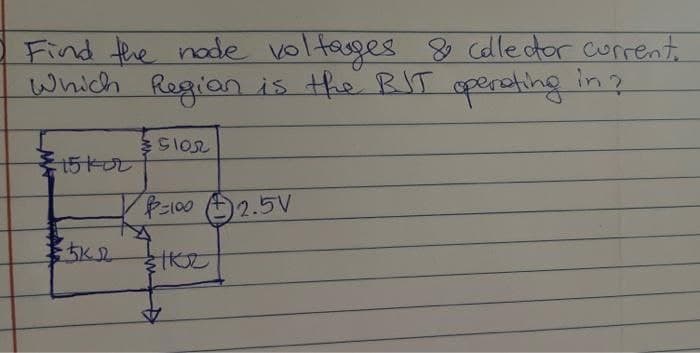 Find the node voltages & collector current.
Which Region is the BJT operating in?
510Ω
15kΩ
β=100
2.5V
5kΩ
1kΩ